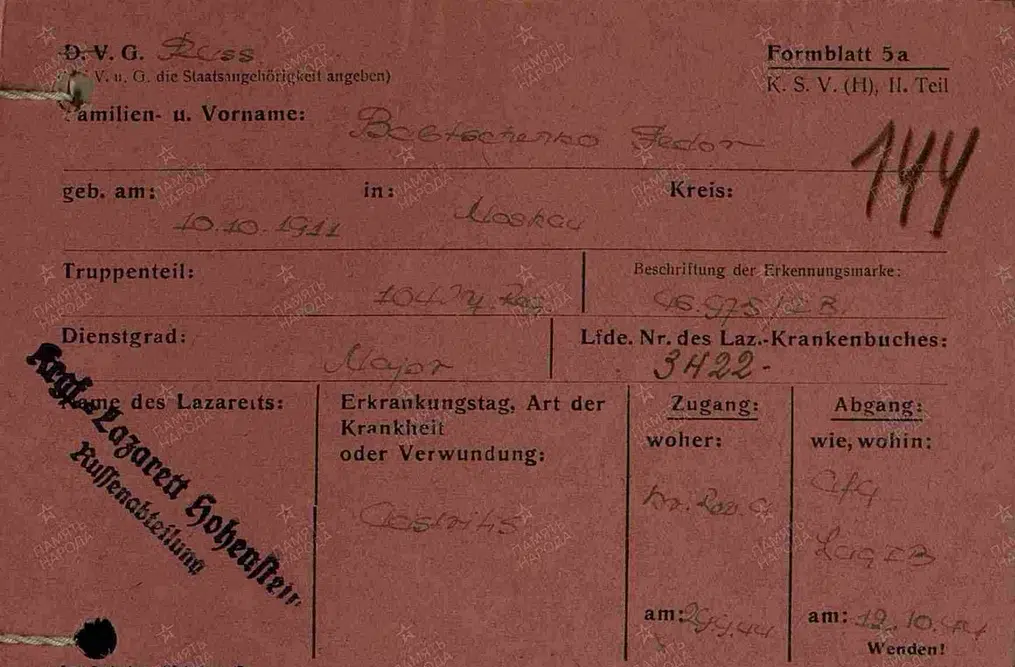 D. V. G. Russ
V. u. G. die Staatsangehörigkeit angeben)
Formblatt 5a
K. S. V. (H), II. Teil
Familien- u. Vorname:
Fedor
144
geb. am: in: Kreis:
10.10.1911 Moskau
Truppenteil:
104.
Beschriftung der Erkennungsmarke:
Dienstgrad:
Major
Lfde. Nr. des Laz.-Krankenbuches:
3422.
Name des Lazaretts:
Krgf.-Lazarett Hohenstein
Russenabteilung
Erkrankungstag, Art der
Krankheit
oder Verwundung:
Gastritis
Zugang:
woher:
am: 29.9.44
Abgang:
wie, wohin:
Lager
am: 12.10.44
Wenden!
ПАМЯТЬ
НАРОДА